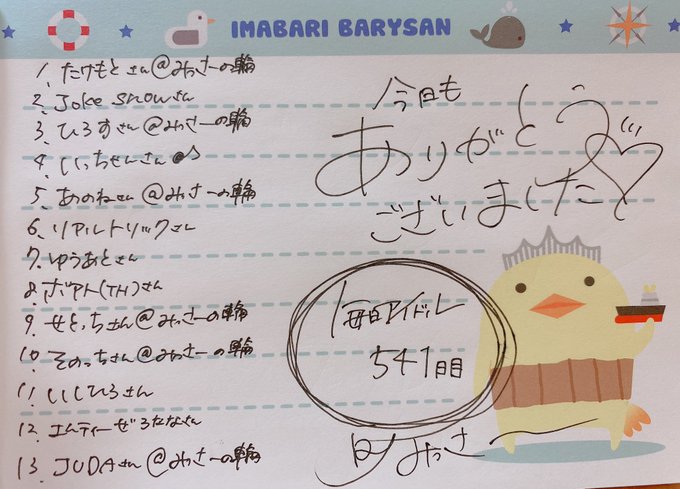 IMABARI BARYSAN
1. たけもとさん@みっさーの輪
2. Joke snowさん
3. ひろすさん@みっさーの輪
4. いっちせんさん
5. あのねさん@みっさーの輪
6. リアルトリックさん
7. ゆうあとさん
8. ボアト(TH)さん
9. せとっちさん@みっさーの輪
10. そのっちさん@みっさーの輪
11. いしひろさん
12. エムティーぜろななさん
13. JUDAさん@みっさーの輪
今日も
ありがとう
ございました
毎日アイドル
541日目
みっさー